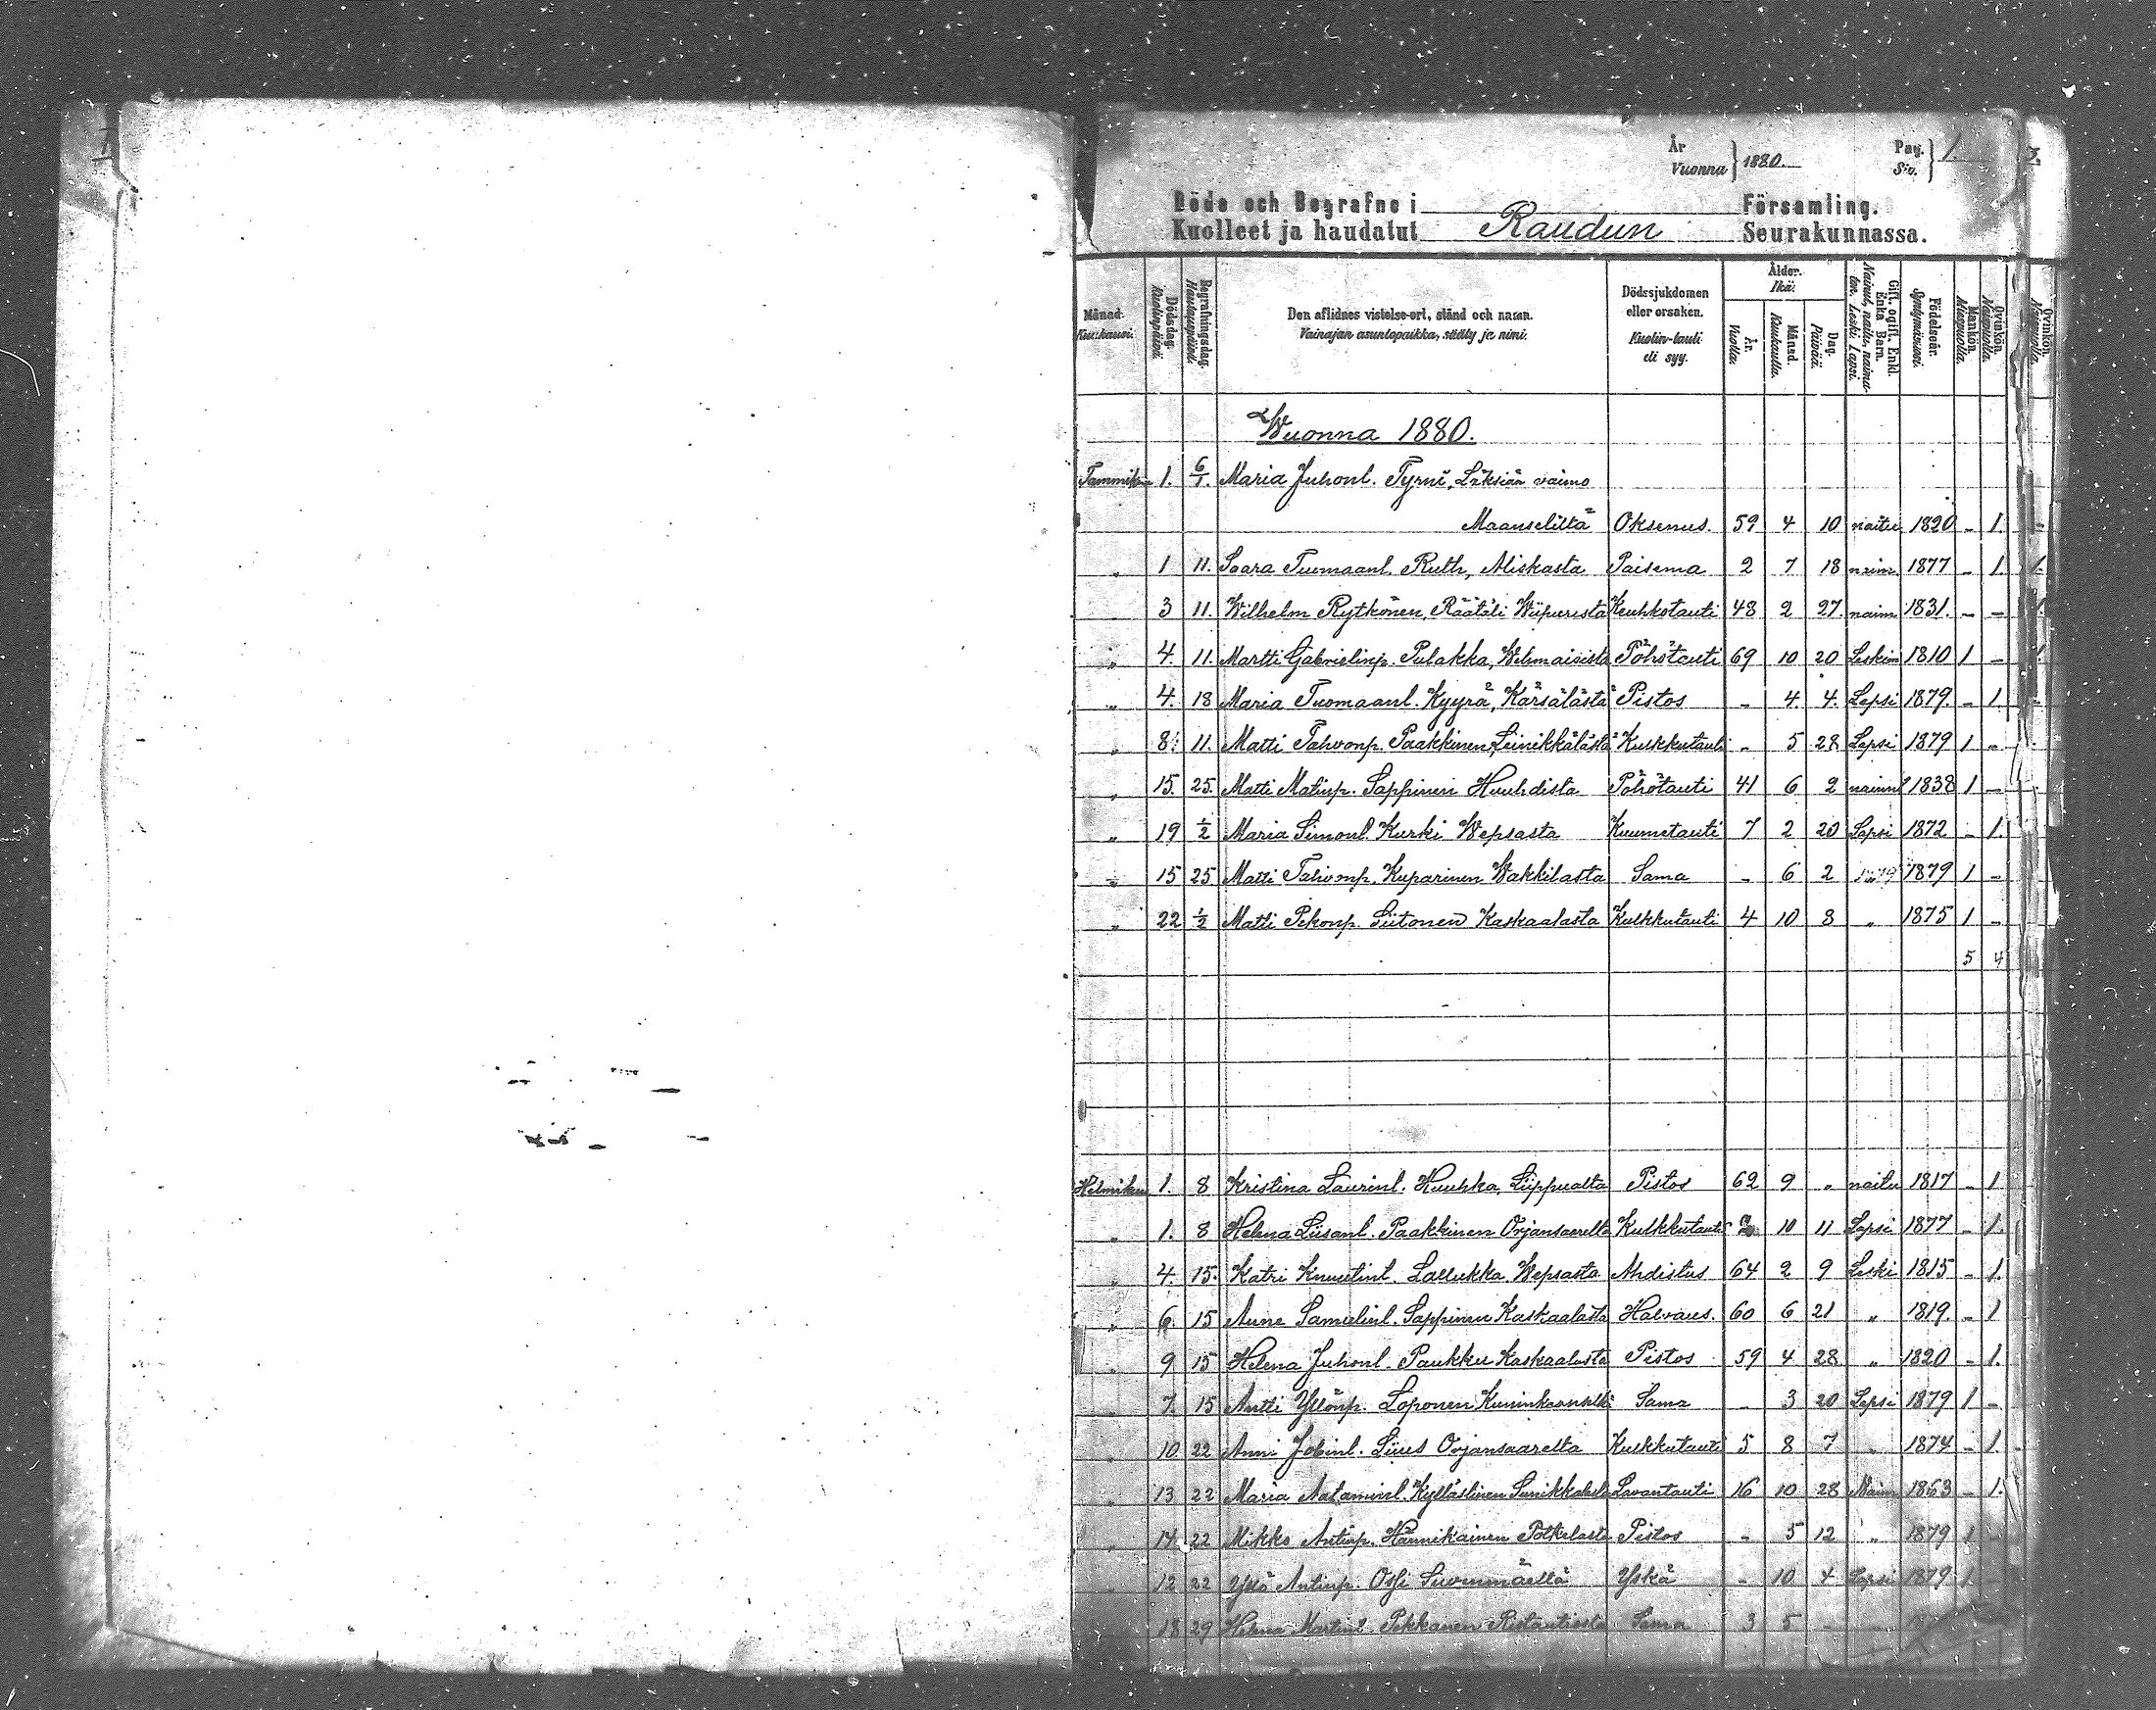 År
Vuonna } 1880.
Pag.
Siv. } 1
Döde och Begrafne i Församling.
Kuolleet ja haudatut Raudun Seurakunnassa.
Månad. Kuukausi. Dödsdag. Kuolinpäivä. Begrafningsdag. Hautauspäivä. Den aflidnes vistelse-ort, stånd och namn. Vainajan asuntopaikka, sääty ja nimi. Dödssjukdomen eller orsaken. Kuolin-tauti eli syy. Ålder. Ikä. År. Vuotta. Månad. Kuukautta. Dag. Päivää. Gift, ogift, Enkl. Enka Barn. Nainut, naitu, naimaton. Leski. Lapsi. Födelseår. Syntymävuosi. Mankön. Miespuolia. Qvinkön. Naispuolia. Qvinkön. Naispuolia.
Wuonna 1880.
Tammik. 1. 6/1. Maria Juhonl. Tyrni, vaimo
Maanselältä Oksenus. 59 4 10 naitu 1820 - 1.
" 1 11. Saara Tuomaanl. Ruth, Miskasta Paisema 2 7 18 naim. 1877 - 1.
3 11. Wilhelm Rytkönen, Räätäli Wiipurista Keuhkotauti 48 2 27 naim 1831. - -
" 4. 11. Martti Gabrielinp. Pulakka, Pöhötauti 69 10 20 Leskim 1810 1 -
" 4. 18 Maria Tuomaanl. Kyyrä, Kärsälästä Pistos - 4. 4. Lapsi 1879. - 1.
" 8. 11. Matti Tahvonp. Paakkinen, Leinikkälästä Kulkkutauti - 5 28 Lapsi 1879 1 -
" 15. 25. Matti Matinp. Sappinen Huuhdista Pöhötauti 41 6 2 nainut 1838 1 -
" 19 1/2 Maria Simonl. Kurki Wepsasta Kuumetauti 7 2 20 Lapsi 1872 - 1.
" 15 25 Matti Tahvonp. Kuparinen Wakkilasta Sama - 6 2 1879 1 -
" 22 1/2 Matti Pekonp. Siitonen Kaskaalasta Kulkkutauti 4 10 3 " 1875 1 -
5 4
Helmikuu 1. 8 Kristina Laurinl. Huuhka, Liippualta Pistos 62 9 " naitu 1817 - 1
" 1. 8 Helena Liisanl. Paakkinen Orjansaarelta Kulkkutauti 2 10 11 Lapsi 1877 - 1.
" 4. 15. Katri Knuutinl. Lallukka Wepsasta Ahdistus 64 2 9 Leski 1815 - 1.
" 6. 15 Anne Samulinl. Sappinen Kaskaalasta Halvaus. 60 6 21 " 1819. - 1
" 9 15 Helena Juhonl. Paukku Kaskaalasta Pistos 59 4 28 " 1820 - 1.
" 7. 15 Antti Yllönp. Loponen Sama - 3 20 Lapsi 1879 1 -
" 10. 22 Anni Jobinl. Siius Orjansaarelta Kulkkutauti 5 8 7 " 1874 - 1.
" 13 22 Maria Aataminl. Kylläslinen Lavantauti 16 10 28 Naim 1863 - 1.
" 14. 22 Mikko Antinp. Hännikäinen Potkelasta Pistos - 5 12 " 1879 1 -
12 22 Yllö Antinp. Ossi Suvenmäeltä Yskä - 10 4 Lapsi 1879 1
18 29 Helena Martinl. Pekkanen Sama 3 5 -